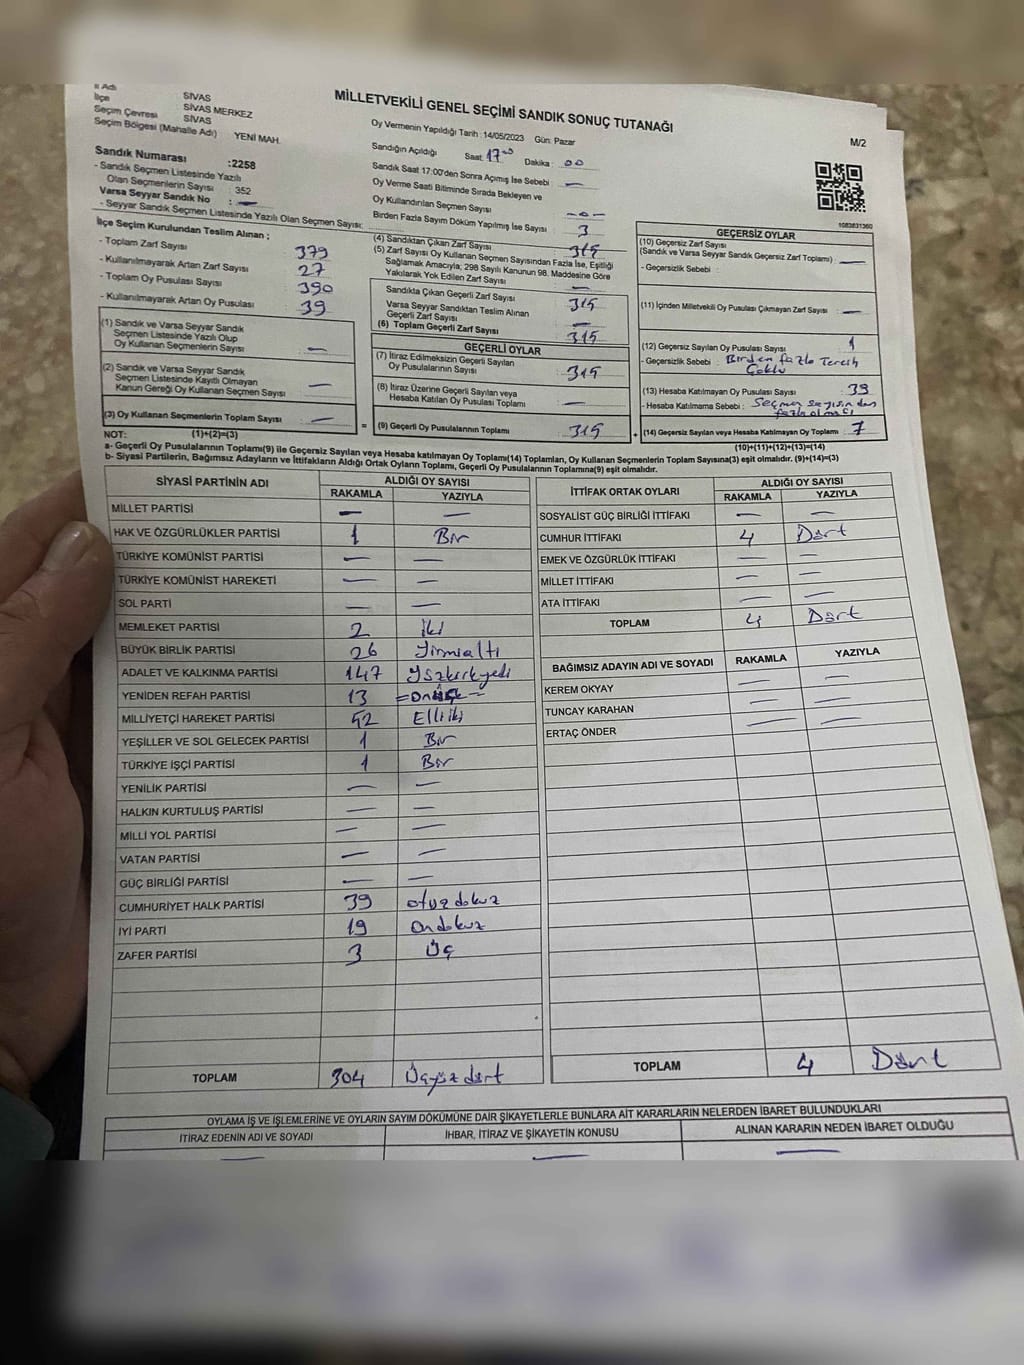 İl Adı SİVAS
İlçe : SİVAS MERKEZ
Seçim Çevresi : SİVAS
Seçim Bölgesi (Mahalle Adı) YENİ MAH.
MİLLETVEKİLİ GENEL SEÇİMİ SANDIK SONUÇ TUTANAĞI
M/2
Oy Vermenin Yapıldığı Tarih : 14/05/2023 Gün: Pazar
Sandığın Açıldığı Saat: 17°° Dakika : 00
Sandık Saat 17:00'den Sonra Açımış İse Sebebi : —
Oy Verme Saati Bitiminde Sırada Bekleyen ve
Oy Kullandırılan Seçmen Sayısı : -0-
Birden Fazla Sayım Döküm Yapılmış İse Sayısı : 3
Sandık Numarası :2258
- Sandık Seçmen Listesinde Yazılı
Olan Seçmenlerin Sayısı : 352
Varsa Seyyar Sandık No : —
- Seyyar Sandık Seçmen Listesinde Yazılı Olan Seçmen Sayısı:
1083831360
İlçe Seçim Kurulundan Teslim Alınan ;
- Toplam Zarf Sayısı : 379
- Kullanılmayarak Artan Zarf Sayısı : 27
- Toplam Oy Pusulası Sayısı : 390
- Kullanılmayarak Artan Oy Pusulası : 39
(1) Sandık ve Varsa Seyyar Sandık
Seçmen Listesinde Yazılı Olup
Oy Kullanan Seçmenlerin Sayısı : —
(2) Sandık ve Varsa Seyyar Sandık
Seçmen Listesinde Kayıtlı Olmayan
Kanun Gereği Oy Kullanan Seçmen Sayısı : —
(3) Oy Kullanan Seçmenlerin Toplam Sayısı : —
(4) Sandıktan Çıkan Zarf Sayısı : 315
(5) Zarf Sayısı Oy Kullanan Seçmen Sayısından Fazla İse, Eşitliği
Sağlamak Amacıyla; 298 Sayılı Kanunun 98. Maddesine Göre
Yakılarak Yok Edilen Zarf Sayısı : —
Sandıkta Çıkan Geçerli Zarf Sayısı : 315
Varsa Seyyar Sandıktan Teslim Alınan
Geçerli Zarf Sayısı : —
(6) Toplam Geçerli Zarf Sayısı : 315
GEÇERLİ OYLAR
(7) İtiraz Edilmeksizin Geçerli Sayılan
Oy Pusulalarının Sayısı : 315
(8) İtiraz Üzerine Geçerli Sayılan veya
Hesaba Katılan Oy Pusulası Toplamı : —
= (9) Geçerli Oy Pusulalarının Toplamı 315
GEÇERSİZ OYLAR
(10) Geçersiz Zarf Sayısı
(Sandık ve Varsa Seyyar Sandık Geçersiz Zarf Toplamı) : —
- Geçersizlik Sebebi :
(11) İçinden Milletvekili Oy Pusulası Çıkmayan Zarf Sayısı : —
(12) Geçersiz Sayılan Oy Pusulası Sayısı : 1
- Geçersizlik Sebebi : Birden fazla Tercih
(13) Hesaba Katılmayan Oy Pusulası Sayısı : 39
- Hesaba Katılmama Sebebi : Seçmen sayısından
fazla olması
+ (14) Geçersiz Sayılan veya Hesaba Katılmayan Oy Toplamı : 7
NOT: (1)+(2)=(3)
(10)+(11)+(12)+(13)=(14)
a- Geçerli Oy Pusulalarının Toplamı(9) ile Geçersiz Sayılan veya Hesaba katılmayan Oy Toplamı(14) Toplamları, Oy Kullanan Seçmenlerin Toplam Sayısına(3) eşit olmalıdır. (9)+(14)=(3)
b- Siyasi Partilerin, Bağımsız Adayların ve İttifakların Aldığı Ortak Oyların Toplamı, Geçerli Oy Pusulalarının Toplamına(9) eşit olmalıdır.
SİYASİ PARTİNİN ADI ALDIĞI OY SAYISI
RAKAMLA YAZIYLA
MİLLET PARTİSİ — —
HAK VE ÖZGÜRLÜKLER PARTİSİ 1 Bir
TÜRKİYE KOMÜNİST PARTİSİ — —
TÜRKİYE KOMÜNİST HAREKETİ — —
SOL PARTİ — —
MEMLEKET PARTİSİ 2 İki
BÜYÜK BİRLİK PARTİSİ 26 Yirmialtı
ADALET VE KALKINMA PARTİSİ 147 Yüzkırkyedi
YENİDEN REFAH PARTİSİ 13 =onüç=
MİLLİYETÇİ HAREKET PARTİSİ 52 Elliiki
YEŞİLLER VE SOL GELECEK PARTİSİ 1 Bir
TÜRKİYE İŞÇİ PARTİSİ 1 Bir
YENİLİK PARTİSİ — —
HALKIN KURTULUŞ PARTİSİ — —
MİLLİ YOL PARTİSİ — —
VATAN PARTİSİ — —
GÜÇ BİRLİĞİ PARTİSİ — —
CUMHURİYET HALK PARTİSİ 39 otuzdokuz
İYİ PARTİ 19 ondokuz
ZAFER PARTİSİ 3 Üç
TOPLAM 304 Üçyüzdört
İTTİFAK ORTAK OYLARI ALDIĞI OY SAYISI
RAKAMLA YAZIYLA
SOSYALİST GÜÇ BİRLİĞİ İTTİFAKI — —
CUMHUR İTTİFAKI 4 Dört
EMEK VE ÖZGÜRLÜK İTTİFAKI — —
MİLLET İTTİFAKI — —
ATA İTTİFAKI — —
TOPLAM 4 Dört
BAĞIMSIZ ADAYIN ADI VE SOYADI RAKAMLA YAZIYLA
KEREM OKYAY — —
TUNCAY KARAHAN — —
ERTAÇ ÖNDER — —
TOPLAM 4 Dört
OYLAMA İŞ VE İŞLEMLERİNE VE OYLARIN SAYIM DÖKÜMÜNE DAİR ŞİKAYETLERLE BUNLARA AİT KARARLARIN NELERDEN İBARET BULUNDUKLARI
İTİRAZ EDENİN ADI VE SOYADI İHBAR, İTİRAZ VE ŞİKAYETİN KONUSU ALINAN KARARIN NEDEN İBARET OLDUĞU